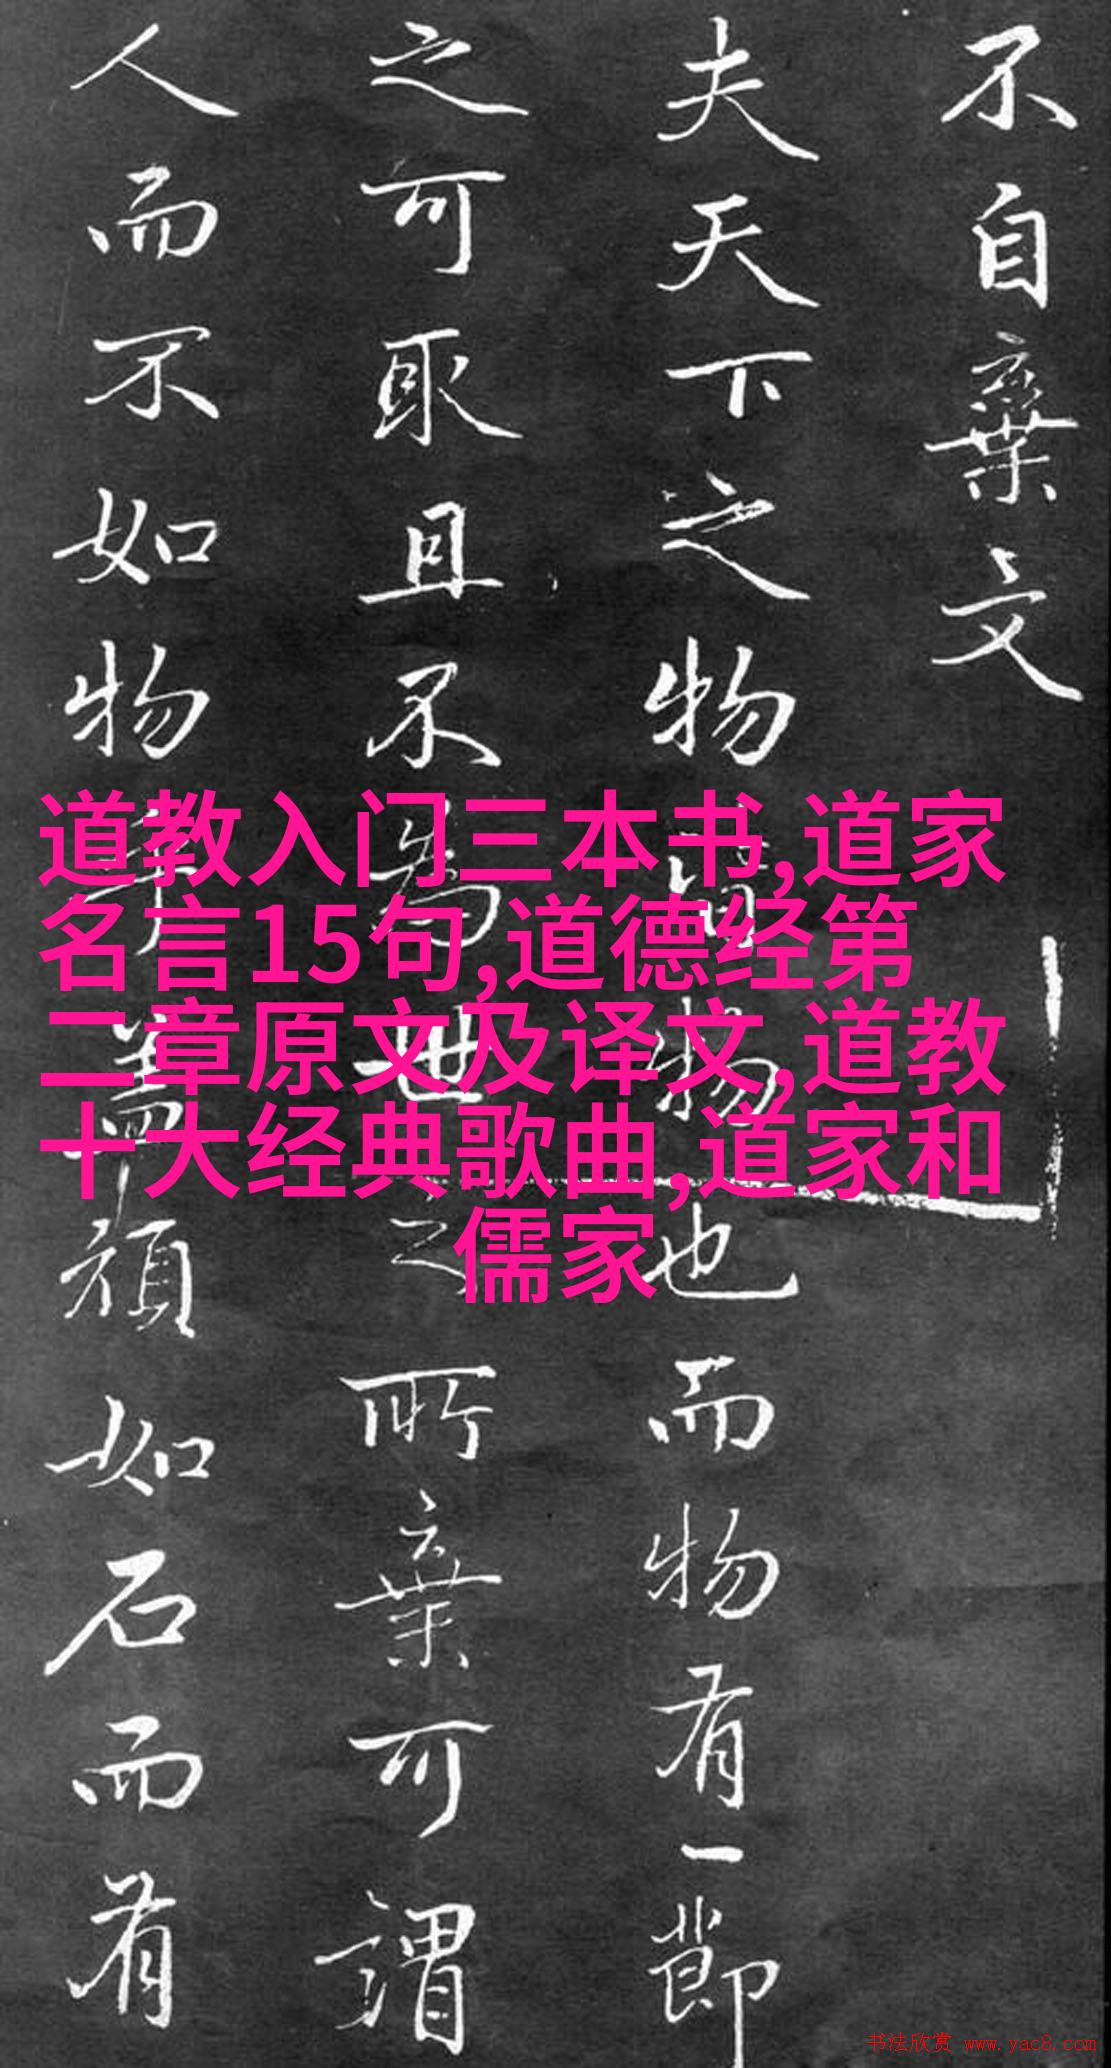 不自棄文
夫天下之物皆物也而物有一節
之可取且不為世之所棄可謂
人而不如物乎蓋頑如石而有
道教入门三本书,道家
名言15句,道德经第
二章原文及译文,道教
十大经典歌曲,道家和
儒家
书法欣赏 www.yac8.com